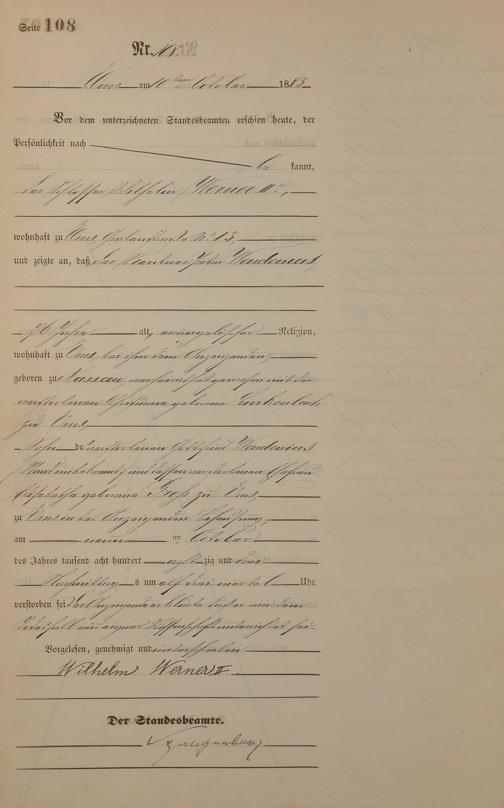 Seite 108
Nr. 108.
Ems am 10ten October 1883.
Vor dem unterzeichneten Standesbeamten erschien heute, der
Persönlichkeit nach
be kannt,
der Schlosser Wilhelm Werner II.,
wohnhaft zu Ems, No. 13,
und zeigte an, daß der Rentner Peter
76 Jahre alt, evangelischer Religion,
wohnhaft zu Ems bei ihm dem Anzeigenden,
geboren zu Nassau, verheirathet gewesen mit der
verstorbenen Christiane geborene
zu Ems
Sohn des verstorbenen Gottfried
und dessen verstorbenen Ehefrau
Elisabetha geborene zu Ems,
zu Ems in des Anzeigenden Behausung,
am neun ten October
des Jahres tausend acht hundert achtzig und drei
Vormittags um elf drei viertel Uhr
verstorben sei. Der Anzeigende erklärte daß er von dem
Sterbfall aus eigener Wissenschaft unterrichtet sei.
Vorgelesen, genehmigt und unterschrieben
Wilhelm Werner II
Der Standesbeamte.